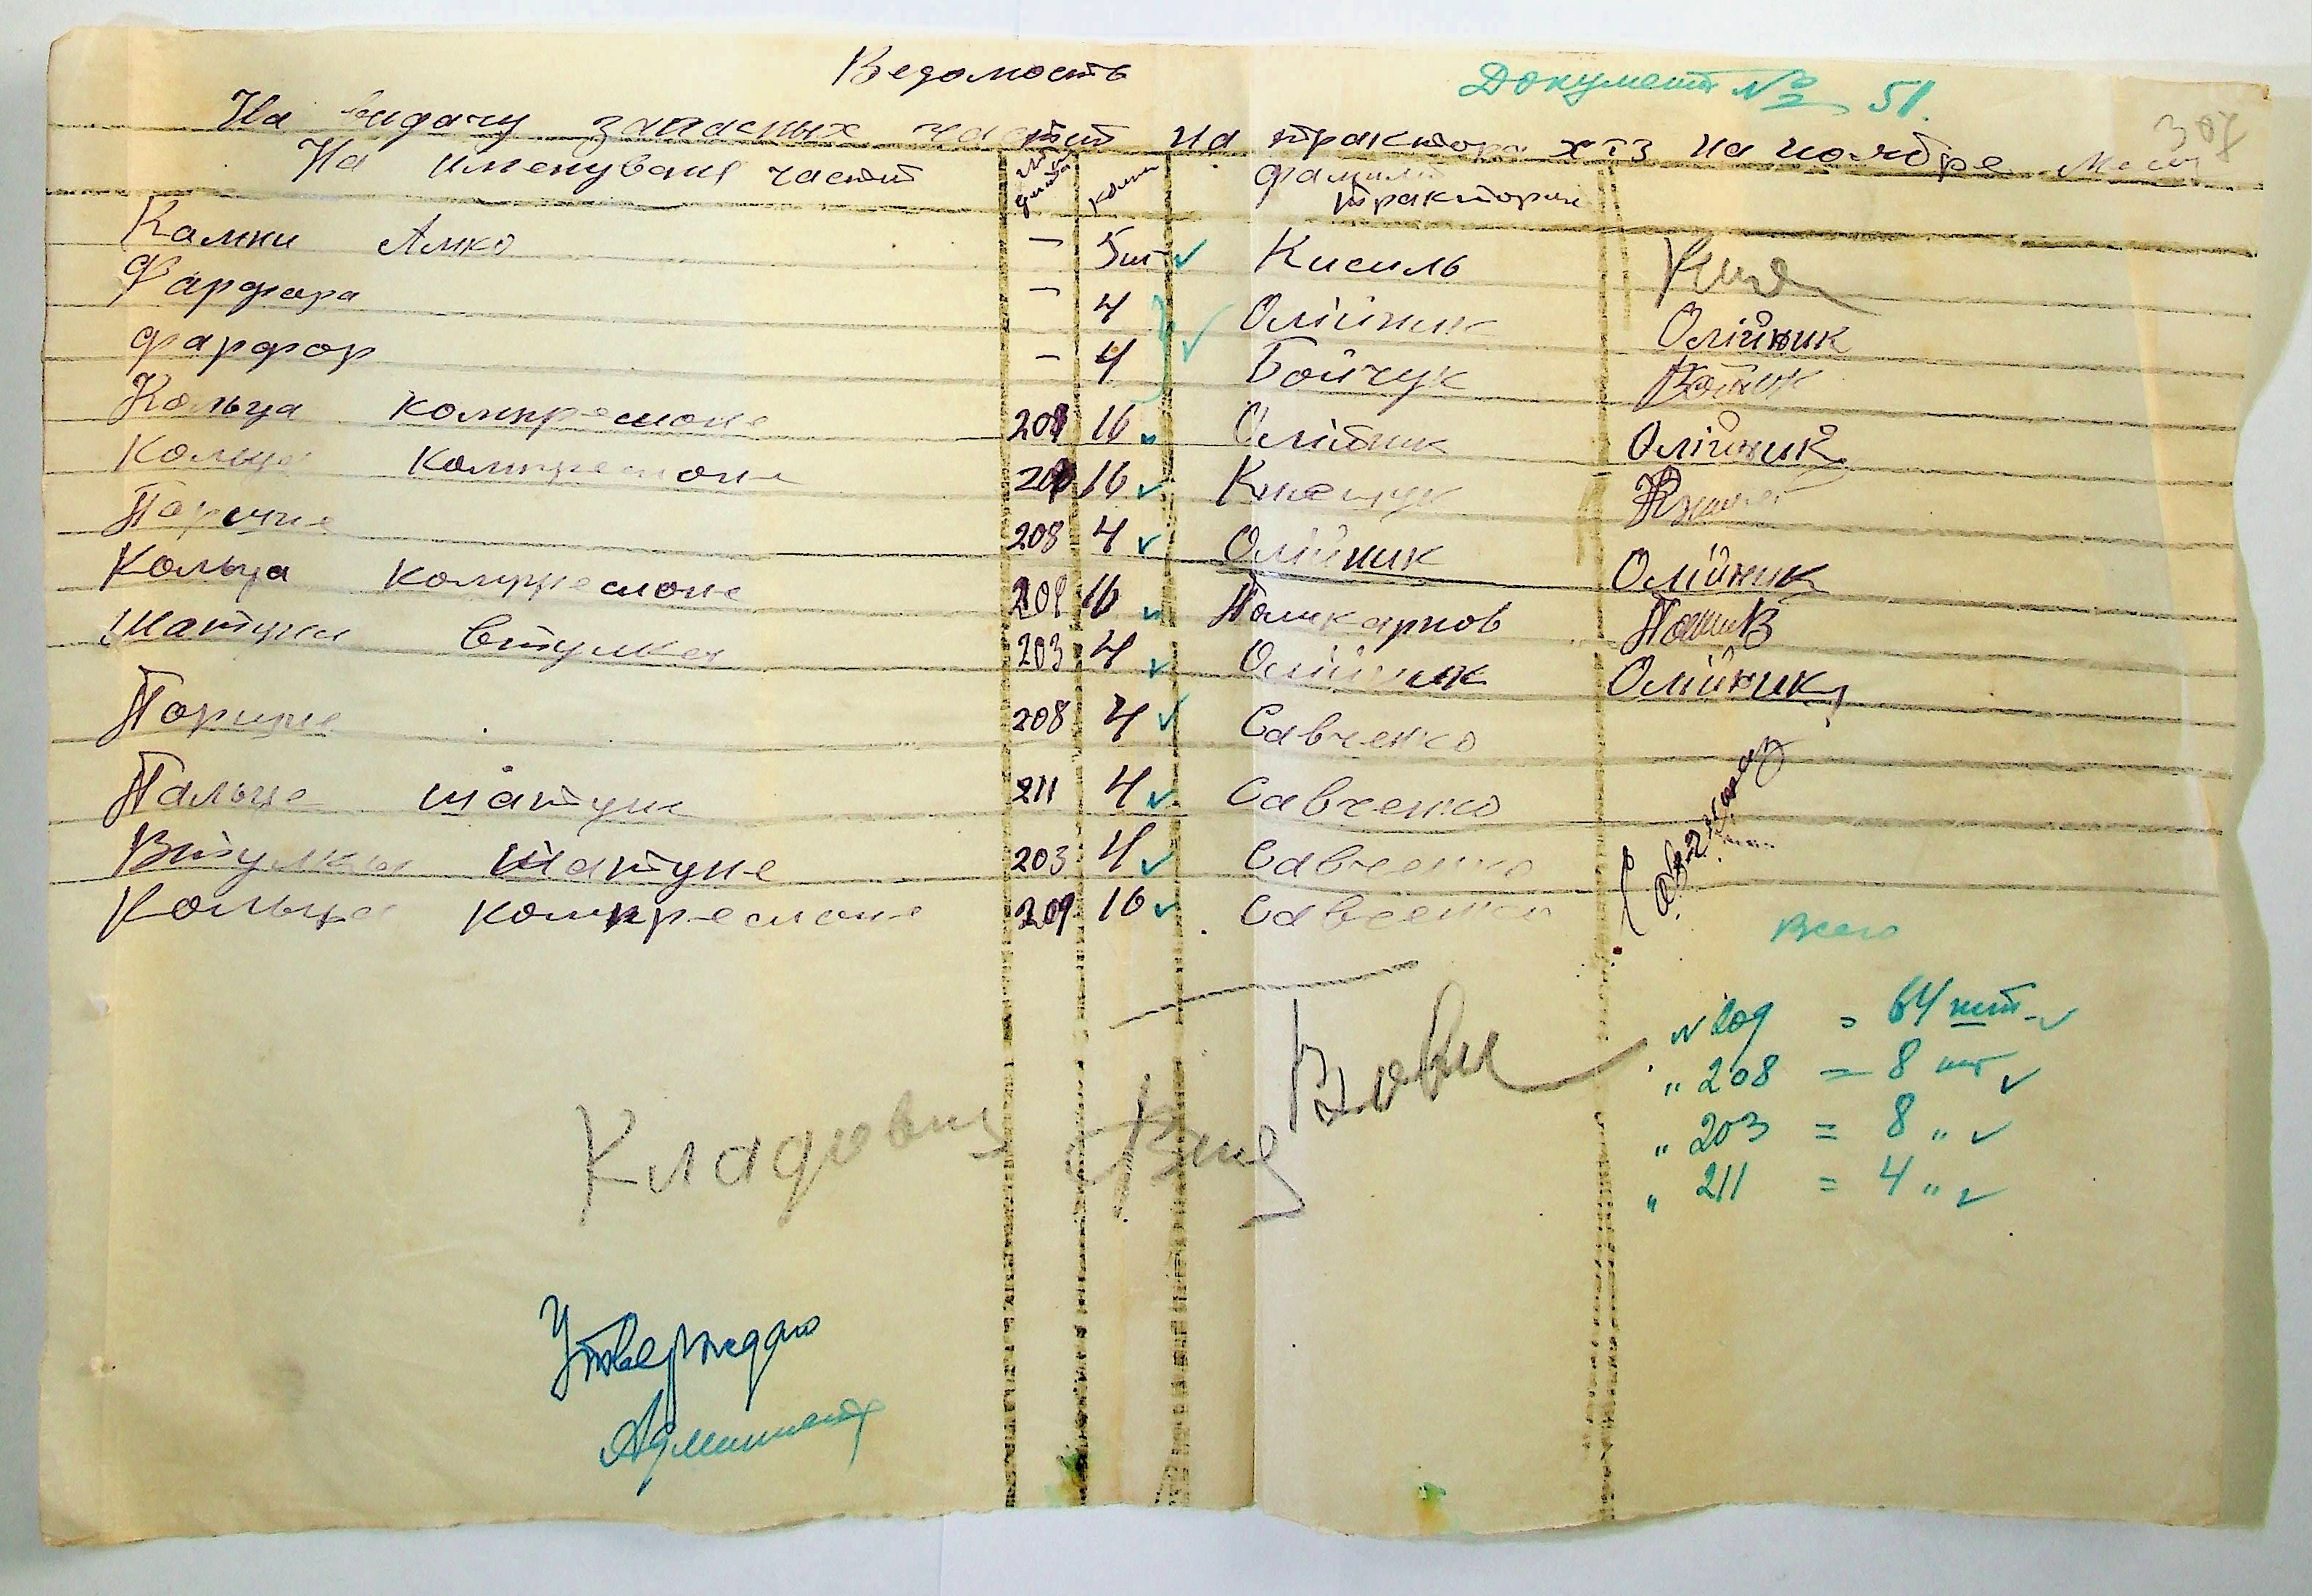 Ведомость
Документ № 51.
308
На видачу запасных частит на трактора ХТЗ на ноябре
На именуваня частит колич фамили тракторис
Камни Амко — 5шт Кисиль
Фарфора — 4 Олійник Олійник
Фарфор — 4 Бойчук
Кольца компресионе 209 16 Олійник Олійник
Кольца компресионе 209 16
Поршне 208 4 Олійник Олійник
Кольца компресионе 209 16 Поликарпов
Шатуни втулка 203 4 Олійник Олійник
Поршне 208 4 Савченко
Пальце шатуне 211 4 Савченко
Втулка шатуне 203 4 Савченко
Кольца компресионе 209 16 Савченко
Савченко
Всего
№ 209 = 64 шт
" 208 = 8 шт
" 203 = 8 "
" 211 = 4 "
Кладовщ
Утверждаю